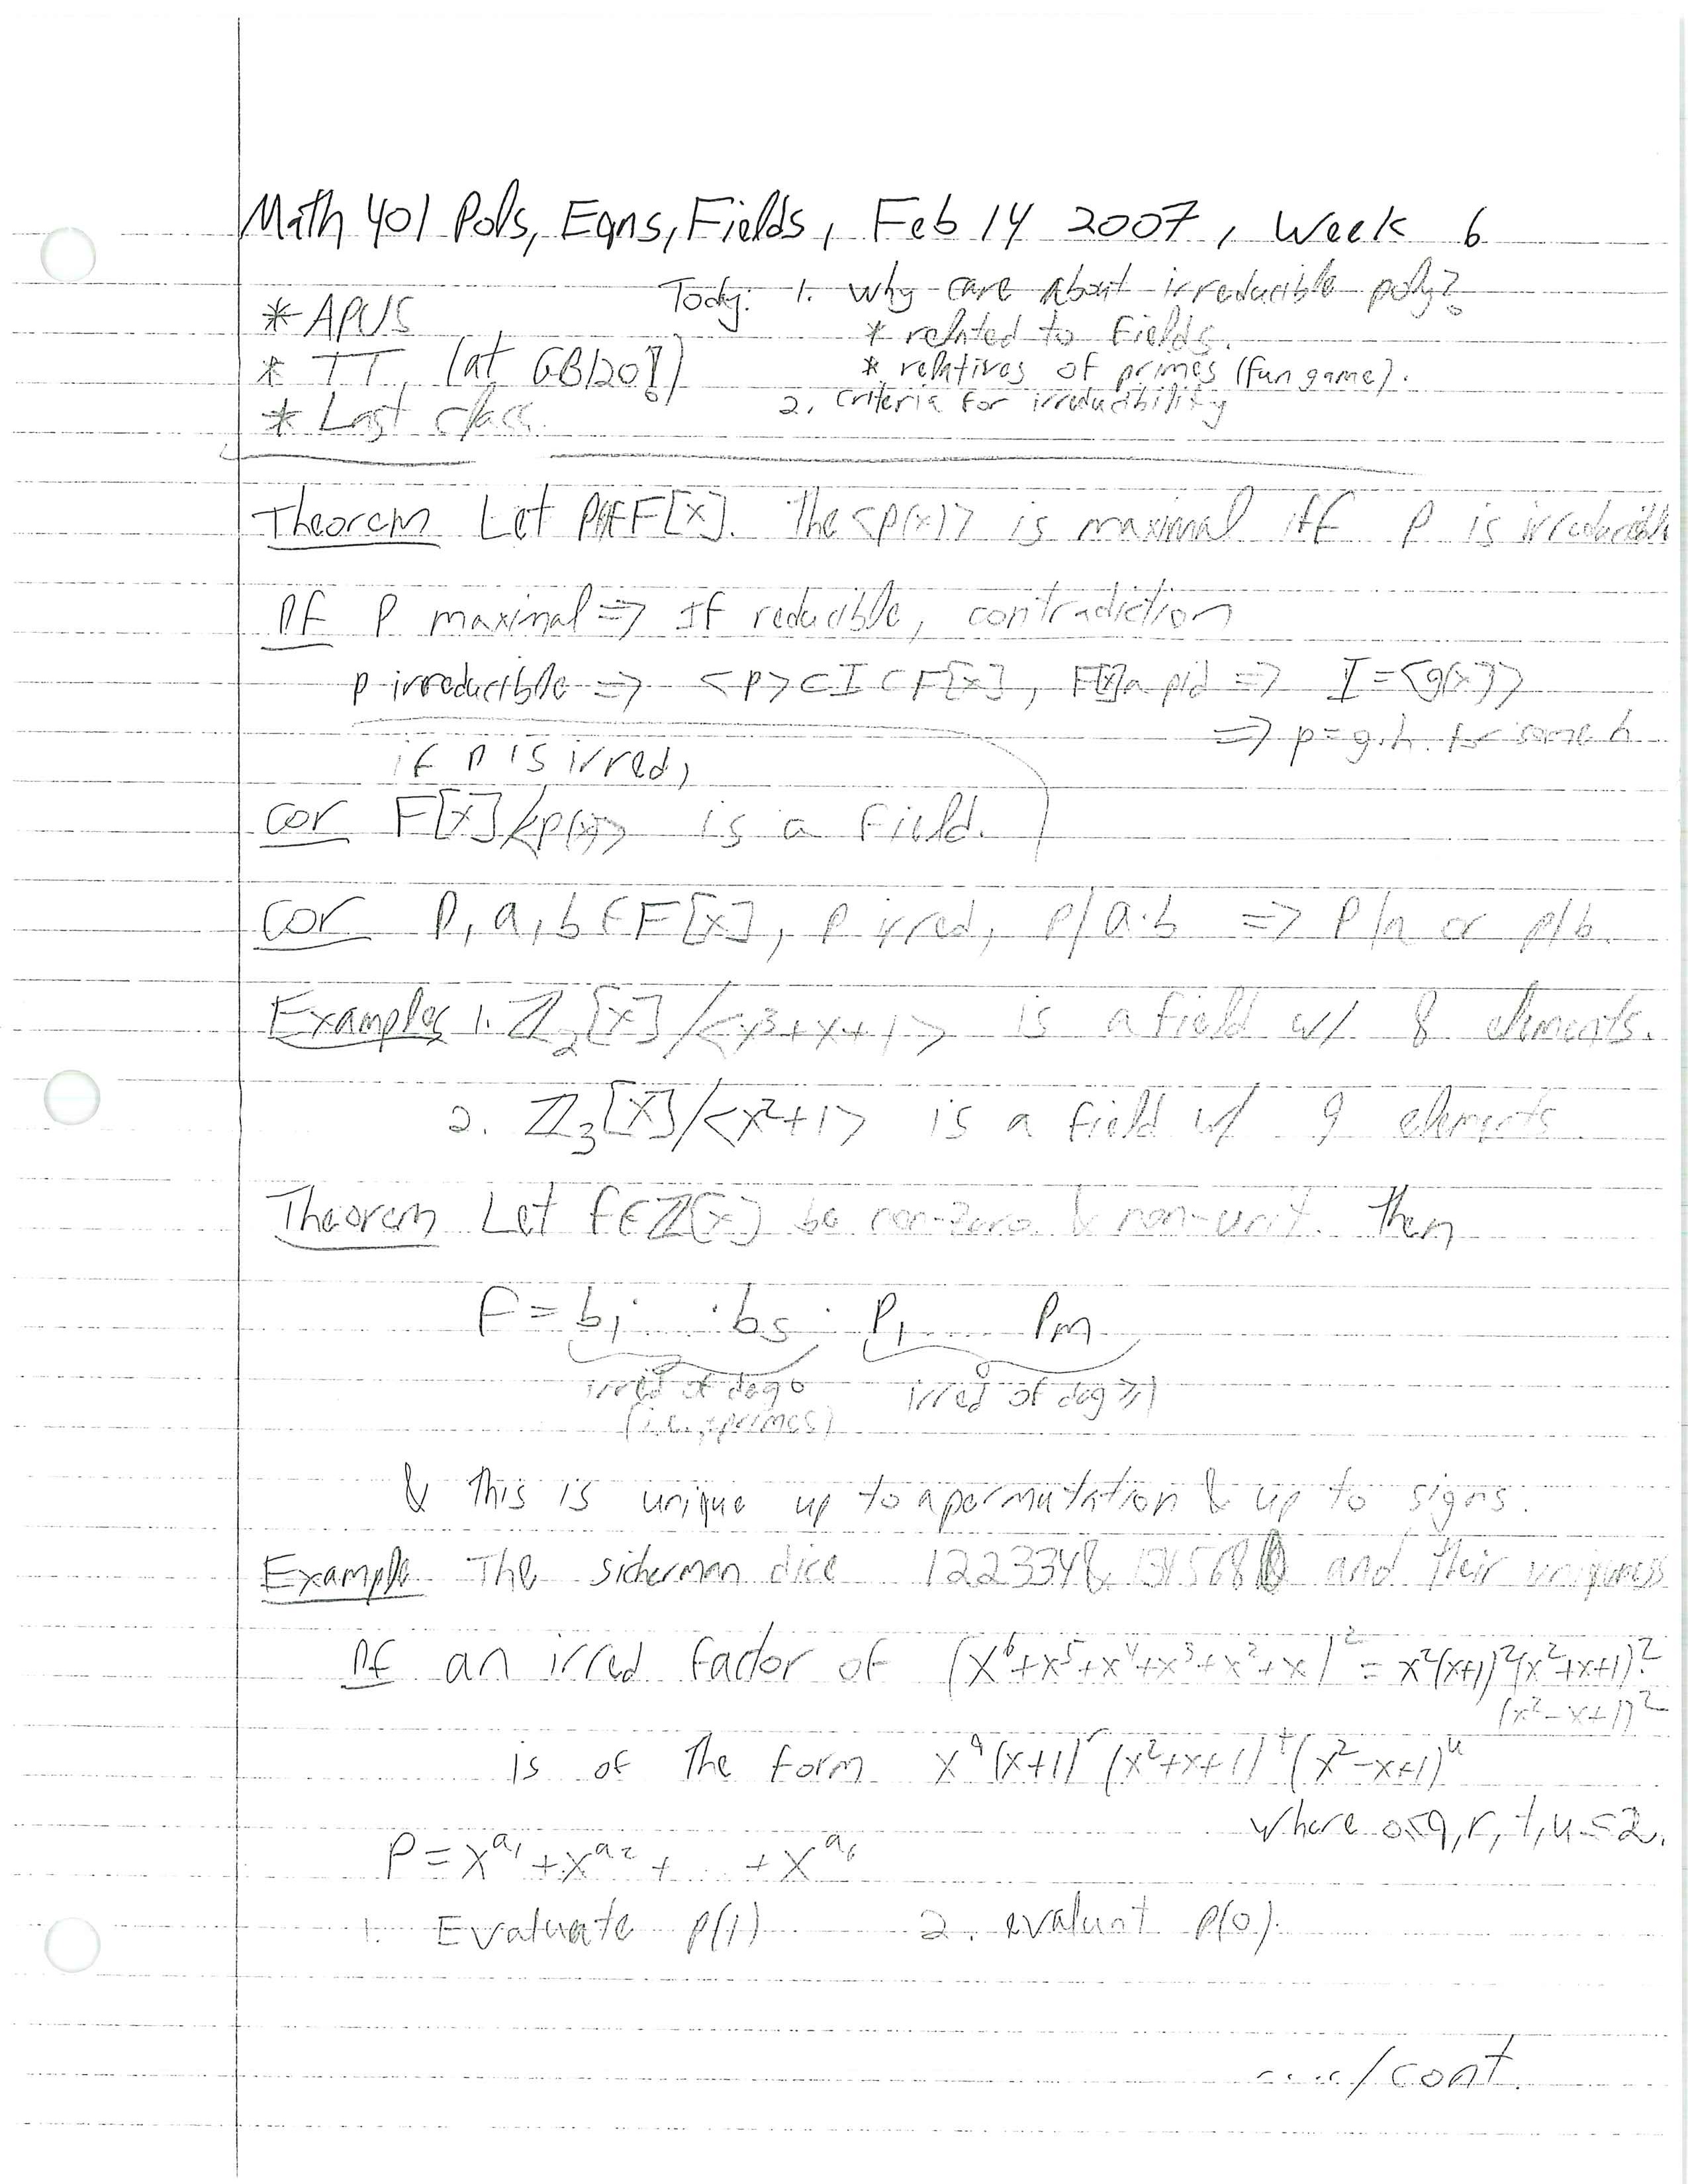 Math 401 Pols, Eqns, Fields, Feb 14 2007, Week 6
Today: 1. Why care about irreducible poly?
* APUS
* related to Fields.
* TT (at GB120!)
* relatives of primes (fun game).
* Last class.
2. Criteria for irreducibility
Theorem Let p∈F[x]. The <p(x)> is maximal iff p is irreducible
Pf p maximal => If reducible, contradiction
p irreducible => <p>⊂I⊂F[x], F[x] a pid => I=<g(x)>
=> p=g·h for some h
if p is irred,
Cor F[x]/<p(x)> is a field.
Cor p,a,b∈F[x], p irred, p|a·b => p|a or p|b.
Examples 1. ℤ₂[x]/<x³+x+1> is a field w/ 8 elements.
2. ℤ₃[x]/<x²+1> is a field w/ 9 elements.
Theorem Let f∈ℤ[x] be non-zero & non-unit. Then
F = b₁· ·bₛ · P₁ .... Pₘ
irred of deg 0 irred of deg ≥1
(i.e., ±primes)
& this is unique up to a permutation & up to signs.
Example The sicherman dice 122334 & 134568 and their uniqueness
Pf an irred factor of (x⁶+x⁵+x⁴+x³+x²+x)² = x²(x+1)²(x²+x+1)²·
(x²-x+1)²
is of the form x^q(x+1)^r(x²+x+1)^t(x²-x+1)^u
where 0≤q,r,t,u≤2.
P = x^a₁+x^a₂+...+x^a₆
1. Evaluate p(1) 2. evaluat p(0).
..../cont.